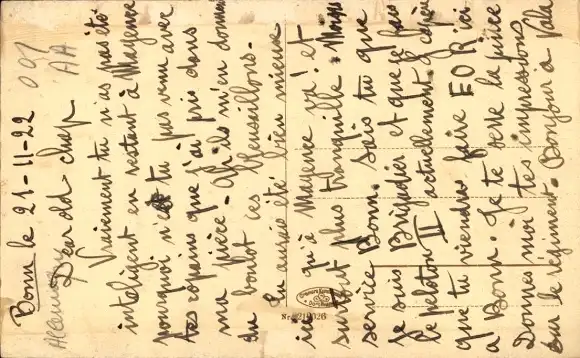 Bonn le 21-11-22
Dear old chap
Vraiment tu n'as pas été
intelligent en restant à Mayence
pourquoi n'es tu pas venu avec
tes copains que j'ai pris dans
ma pièce. Oh ils m'en donnent
du boulot ces
Tu aurais été bien mieux
ici qu'à Mayence va! et
surtout plus tranquille.
service à Bonn. Sais tu que
je suis Brigadier et que je fais
le peloton II actuellement, J'espère
que tu viendras faire EOR ici
à Bonn. Je te serre la pince
Donnes moi tes impressions
sur le régiment. Bonjour à
091
AA
Allemagne
No. 219326